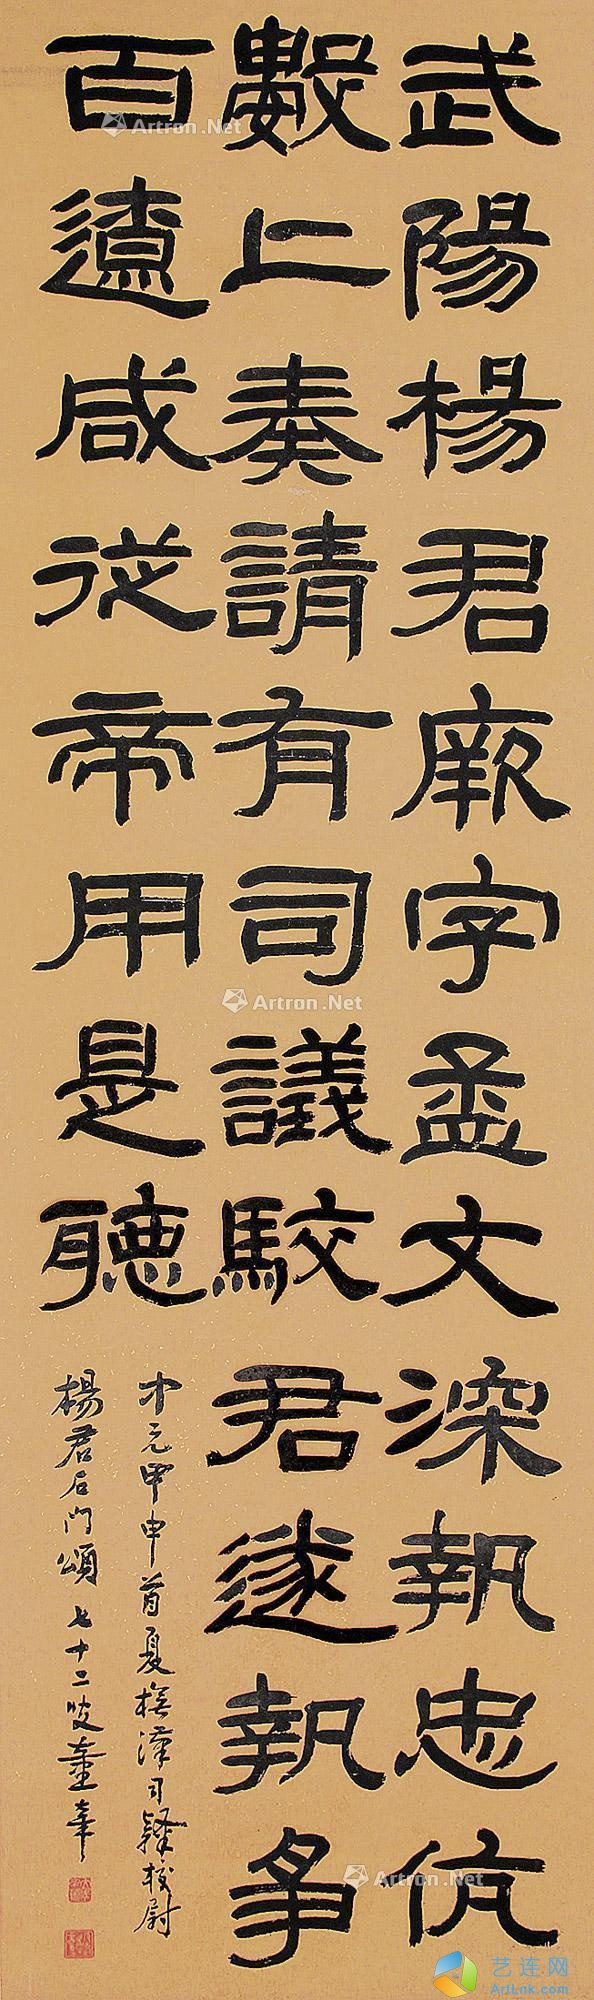 武陽楊君厥字孟文深執忠伉
數上奏請有司議駮君遂執爭
百遼咸從帝用是聽
中元甲申首夏橅漢司隸校尉
楊君石門頌 七十二叟
Artron.Net
Artron.Net
Artron.Net
Artron.Net
艺连网
ArtLnk.com